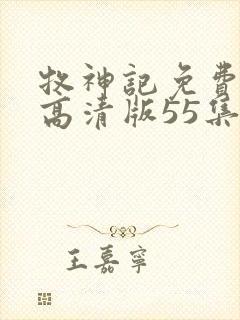 牧神記免費
高清版55集
王嘉寧